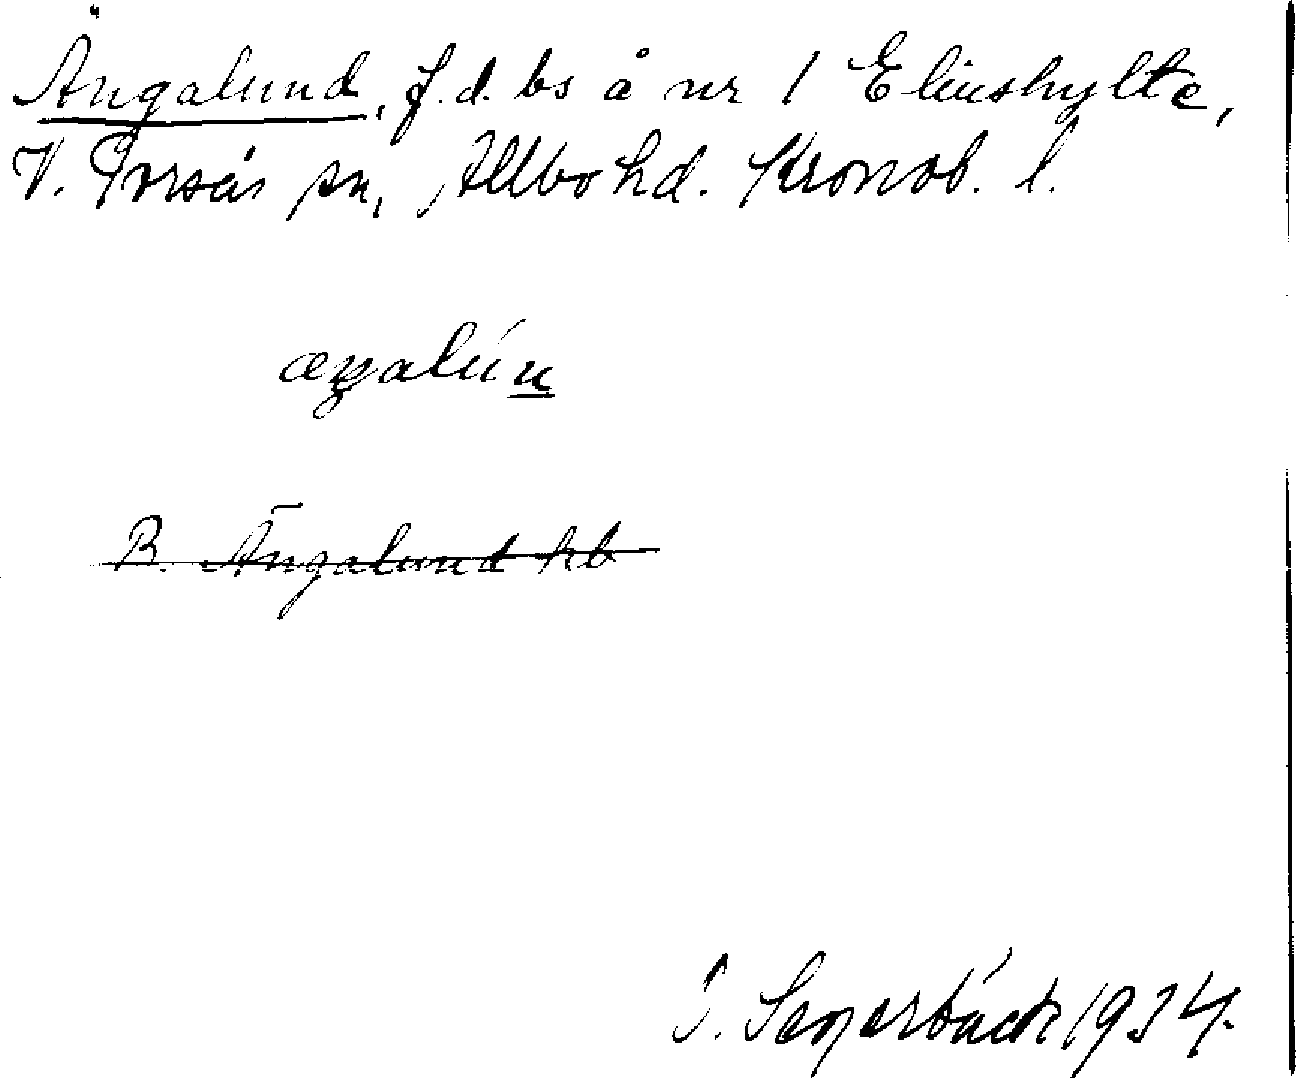 Ängalund, f.d. bs å nr 1 Elinshylte,
V. Torsås sn, Allbo hd. Kronob. l.
æŋalún
B. Ängalund kb
1934.